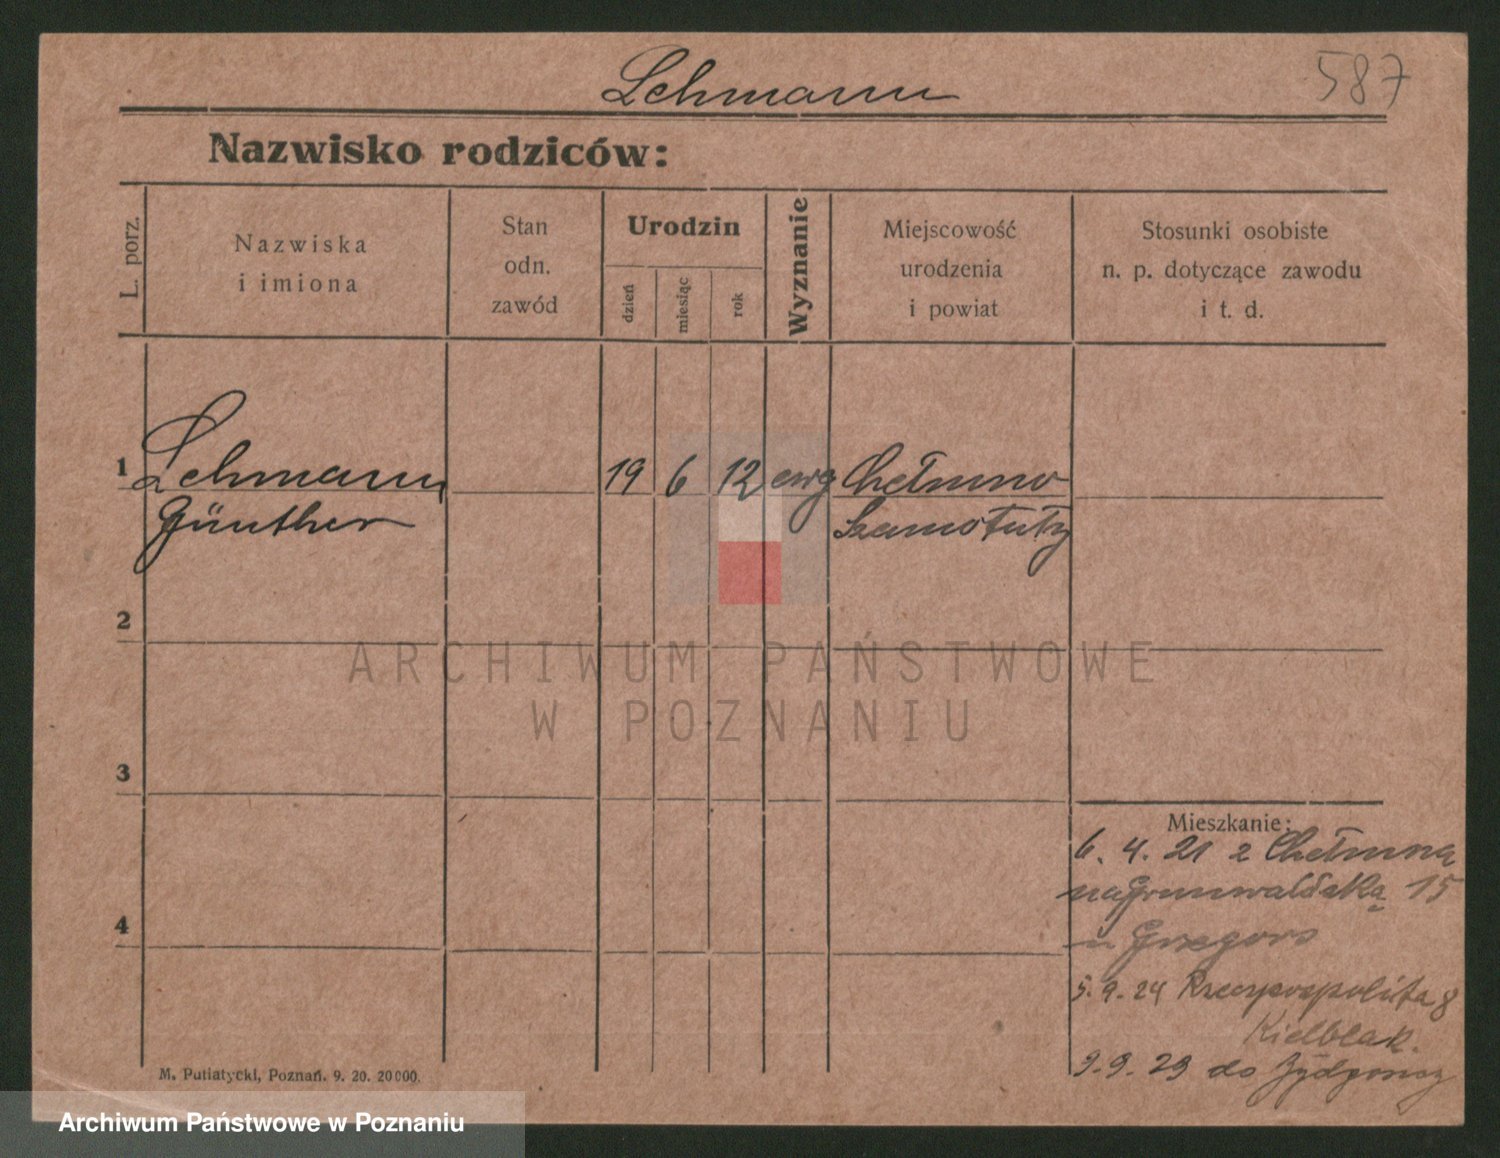 Lehmann
587
Nazwisko rodziców:
L. porz.
Nazwiska
i imiona
Stan
odn.
zawód
Urodzin
dzień
miesiąc
rok
Wyznanie
Miejscowość
urodzenia
i powiat
Stosunki osobiste
n. p. dotyczące zawodu
i t. d.
1 Lehmann 19 6 12 ewg Chełmno
Günther Szamotuły
2
ARCHIWUM PAŃSTWOWE
W POZNANIU
3
Mieszkanie:
6. 4. 21 z Chełmna
na Grunwaldzką 15
u
4
5. 9. 24 Rzeczpospolita 8
9. 9. 29 do
M. Putiatycki, Poznań. 9. 20. 20000.
Archiwum Państwowe w Poznaniu